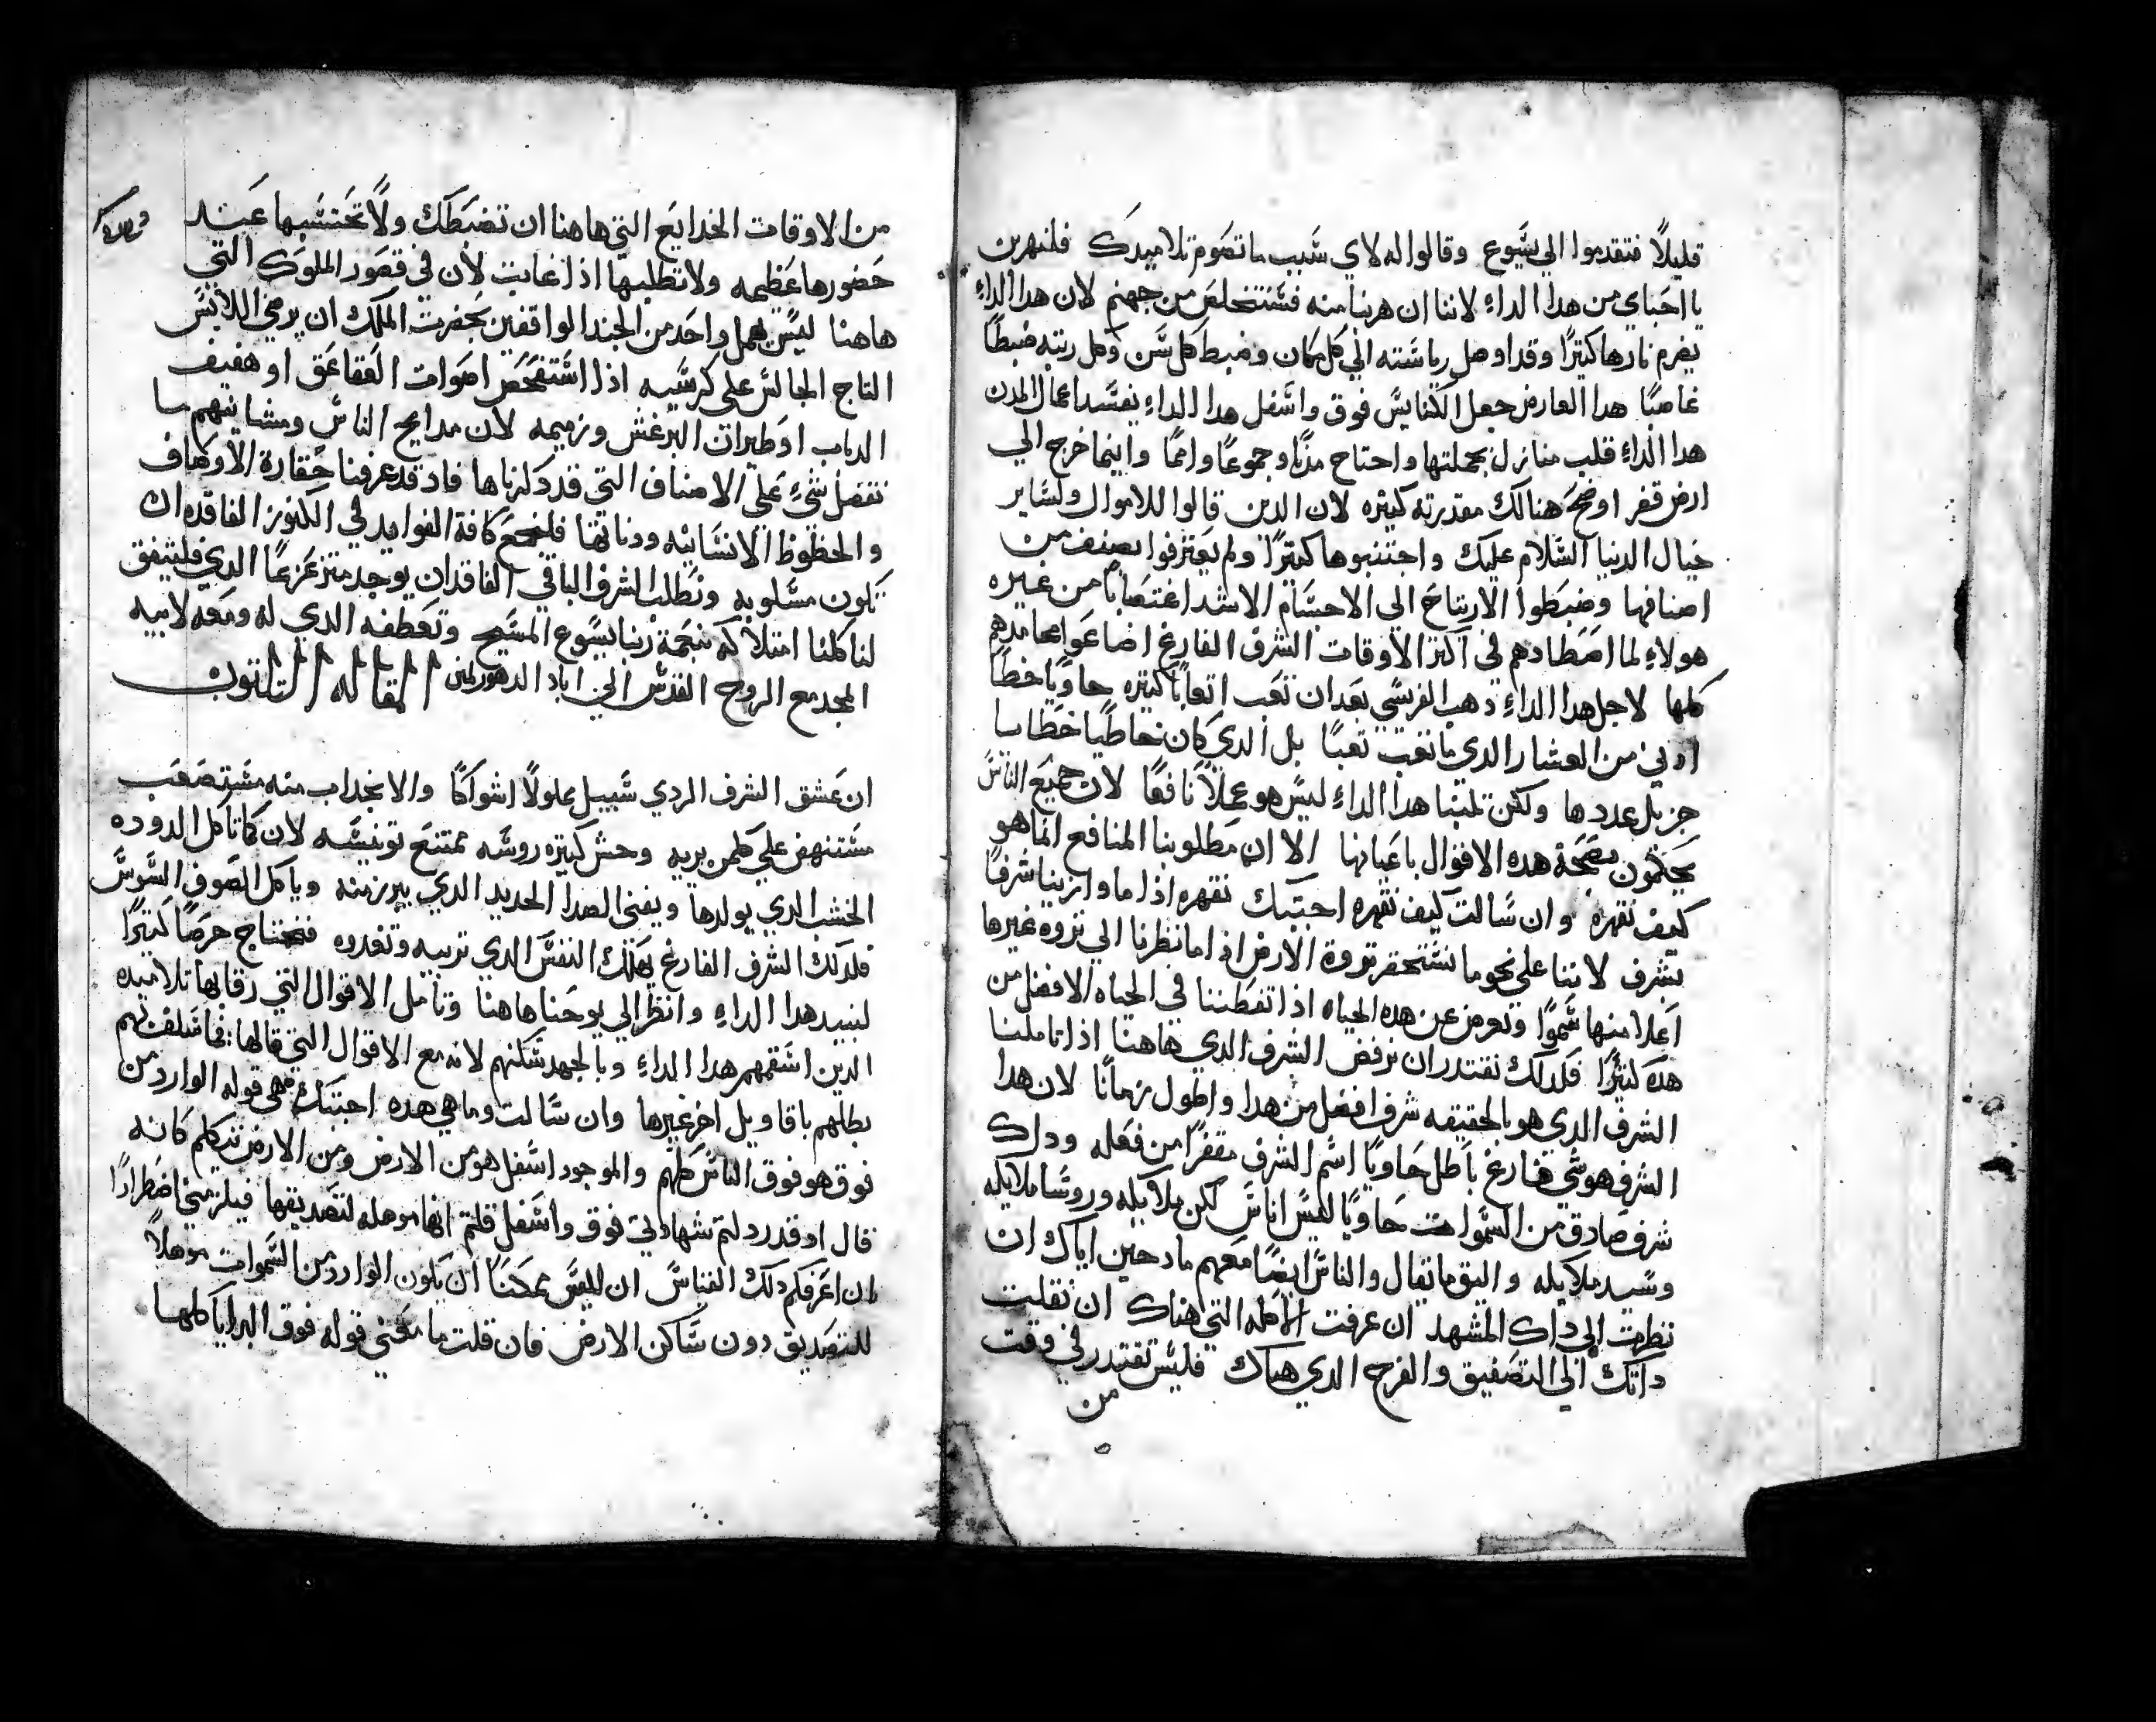 قليلاً فتقدموا الي يسوع وقالوا له لاي سبب ما تصوم تلاميدك فلنهربن
يا احباي من هدا الداءِ لاننا ان هربنا منه فسنتخلص من جهنم لان هدا الداءِ
يضرم نارها كثيرًا وقد اوصل رياسته الي كل مكان وضبط كل سن وكل رتبه ضبطًا
غاصبًا هدا العارض جعل الكنايس فوق واسفل هدا الداءِ يفسد اعمال المدن
هدا الداءِ قلب منازل بجملتها واحتاح مدنًا وجموعًا واممًا واينما خرج الي
ارض قفر اوضح هنالك مقدرته كثيره لان الدين قالوا للاموال ولساير
خيال الدنيا السلام عليك واجتنبوها كثيرًا ولم يعترفوا بصنف من
اصنافها وضبطوا الارتياح الي الاجسام الاشد اغتصابًا من غيره
هولاءِ لما اصطادهم في اكثر الاوقات الشرف الفارغ اضاعوا محامدهم
كلها لاجل هدا الداءِ دهب الفريسي بعد ان تعب اتعابًا كثيره حاويًا خطًا
ادني من العشار الدي ما تعب تعبًا بل الدي كان خاطيًا خطايا
جزيل عددها ولكن ثلبنا هدا الداءِ ليس هو عملاً نافعًا لان جميع الناس
يحكمون بصحة هده الاقوال باعيانها الا ان مطلوبنا المنافع انما هو
كيف نقهره وان سالت كيف نقهره اجبتك نقهره ادا ما وازينا شرفًا
بشرف لاننا علي نحو ما نستحقر ثروة الارض اذا ما نظرنا الي ثروه غيرها
اعلا منها سموًا ونعرض عن هده الحياه اذا تفطننا في الحياه الافضل من
هده كثيرًا فلدلك نقتدر ان نرفض الشرف الدي هاهنا اذا تاملنا
الشرف الدي هو بالحقيقه شرف افضل من هدا واطول زمانًا لان هدا
الشرف هو شي فارغ باطل حاويًا اسم الشرف مقفرًا من فعله وداك
شرف صادق من السموات حاويًا ليس اناس لكن ملايكه وروسا ملايكه
وسيد ملايكه واليق ما تقال والناس ايضًا معهم مادحين اياك ان
نظرت الي داك المشهد ان عرفت الاكله التي هناك ان نقلت
داتك الي التصفيق والفرح الدي هناك فليس تقتدر في وقت
من
من الاوقات الخدايع التي هاهنا ان تضبطك ولا تحتسبها عند
حضورها عظيمه ولا تطلبها اذا غابت لان في قصور الملوك التي
هاهنا ليس يهمل واحد من الجند الواقفين بحضرت الملك ان يرضي اللابس
التاج الجالس علي كرسيه اذا استفحص اصوات العقاعق او هفيف
الدباب او طيران البرغش وزميمه لان مدايح الناس ومشاينهم ما
تفضل شيءِ علي الاصناف التي قد دكرناها فاد قد عرفنا حقارة الاوصاف
والحظوظ الانسانيه ودناتها فلنجمع كافة الفوايد في الكنوز الفاقده ان
تكون مسلوبه ونطلب الشرف الباقي الفاقد ان يوجد متزعزعًا الدي فليتفق
لنا كلنا امتلاكه بنعمة ربنا يسوع المسيح وتعطفه الدي له ومعه لابيه
المجد مع الروح القدس الي اباد الدهور امين المقاله الثلثون
ان عشق الشرف الردي سبيل مملولاً اشواكًا والانجداب منه مستصعب
مستنهض علي كلمن يربيه وحش كثيره روسه ممتنع تونيسه لان كما تاكل الدوده
الخشب الدي يولدها ويفني الصدا الحديد الدي يبرز منه وياكل الصوف السوس
فلدلك الشرف الفارغ يهلك النفس الدي تربيه وتغدوه فنحتاج حرصًا كثيرًا
لنبيد هدا الداءِ وانظر الي يوحنا هاهنا وتامل الاقوال التي رقا بها تلاميده
الدين اسقمهم هدا الداءِ وبالجهد سكنهم لانه مع الاقوال التي قالها فيما سلف نهم
بطلهم باقاويل اخر غيرها وان سالت وما هي هده اجبتك هي قوله الوارد من
فوق هو فوق الناس كلهم والموجود اسفل هو من الارض ومن الارض نتكلم كانه
قال اد قد رددتم شهادتي فوق واسفل قلتم انها موهله لتصديقها فيلزمني اضطرارًا
ان اعرفكم دلك القياس ان ليس ممكنًا ان يكون الوارد من السموات موهلاً
للتصديق دون ساكن الارض فان قلت ما معني قوله فوق البرايا كلها